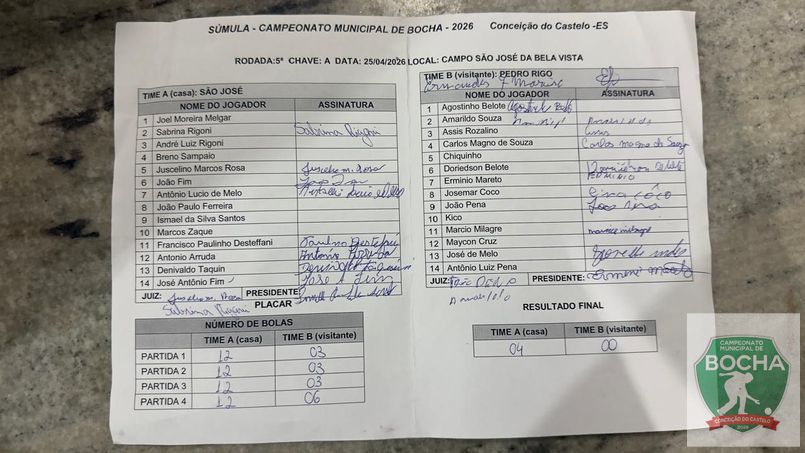 SÚMULA - CAMPEONATO MUNICIPAL DE BOCHA - 2026 Conceição do Castelo -ES
RODADA:5ª CHAVE: A DATA: 25/04/2026 LOCAL: CAMPO SÃO JOSÉ DA BELA VISTA
TIME A (casa): SÃO JOSÉ
NOME DO JOGADOR ASSINATURA
1 Joel Moreira Melgar
2 Sabrina Rigoni Sabrina Rigoni
3 André Luiz Rigoni
4 Breno Sampaio
5 Juscelino Marcos Rosa Juscelino m. Rosa
6 João Fim João Fim
7 Antônio Lucio de Melo
8 João Paulo Ferreira
9 Ismael da Silva Santos
10 Marcos Zaque
11 Francisco Paulinho Desteffani
12 Antonio Arruda Antonio Arruda
13 Denivaldo Taquin
14 José Antônio Fim José A Fim
JUIZ: Juscelino m. Rosa PRESIDENTE:
Sabrina Rigoni
PLACAR
NÚMERO DE BOLAS
TIME A (casa) TIME B (visitante)
PARTIDA 1 12 03
PARTIDA 2 12 03
PARTIDA 3 12 03
PARTIDA 4 12 06
TIME B (visitante): PEDRO RIGO
NOME DO JOGADOR ASSINATURA
1 Agostinho Belote
2 Amarildo Souza
3 Assis Rozalino
4 Carlos Magno de Souza Carlos magno de Souza
5 Chiquinho
6 Doriedson Belote
7 Erminio Mareto ERMINIO
8 Josemar Coco
9 João Pena João Pena
10 Kico
11 Marcio Milagre
12 Maycon Cruz
13 José de Melo
14 Antônio Luiz Pena
JUIZ: PRESIDENTE:
RESULTADO FINAL
TIME A (casa) TIME B (visitante)
04 00
CAMPEONATO
MUNICIPAL DE
BOCHA
CONCEIÇÃO DO CASTELO
2026